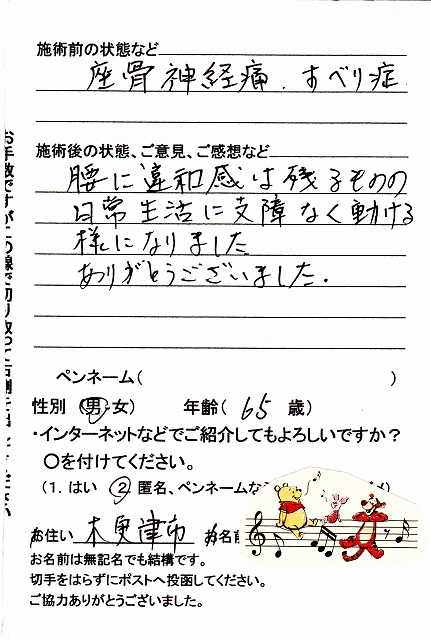 施術前の状態など
座骨神経痛. すべり症
施術後の状態、ご意見、ご感想など
腰に違和感は残るものの
日常生活に支障なく動ける
様になりました
ありがとうございました.
ペンネーム( )
性別 (男・女) 年齢( 65 歳)
・インターネットなどでご紹介してもよろしいですか?
〇を付けてください。
(1. はい ② 匿名、ペンネームな
お住い 木更津市 お名前
お名前は無記名でも結構です。
切手をはらずにポストへ投函してください。
ご協力ありがとうございました。
お手数ですがこの線で切り取って